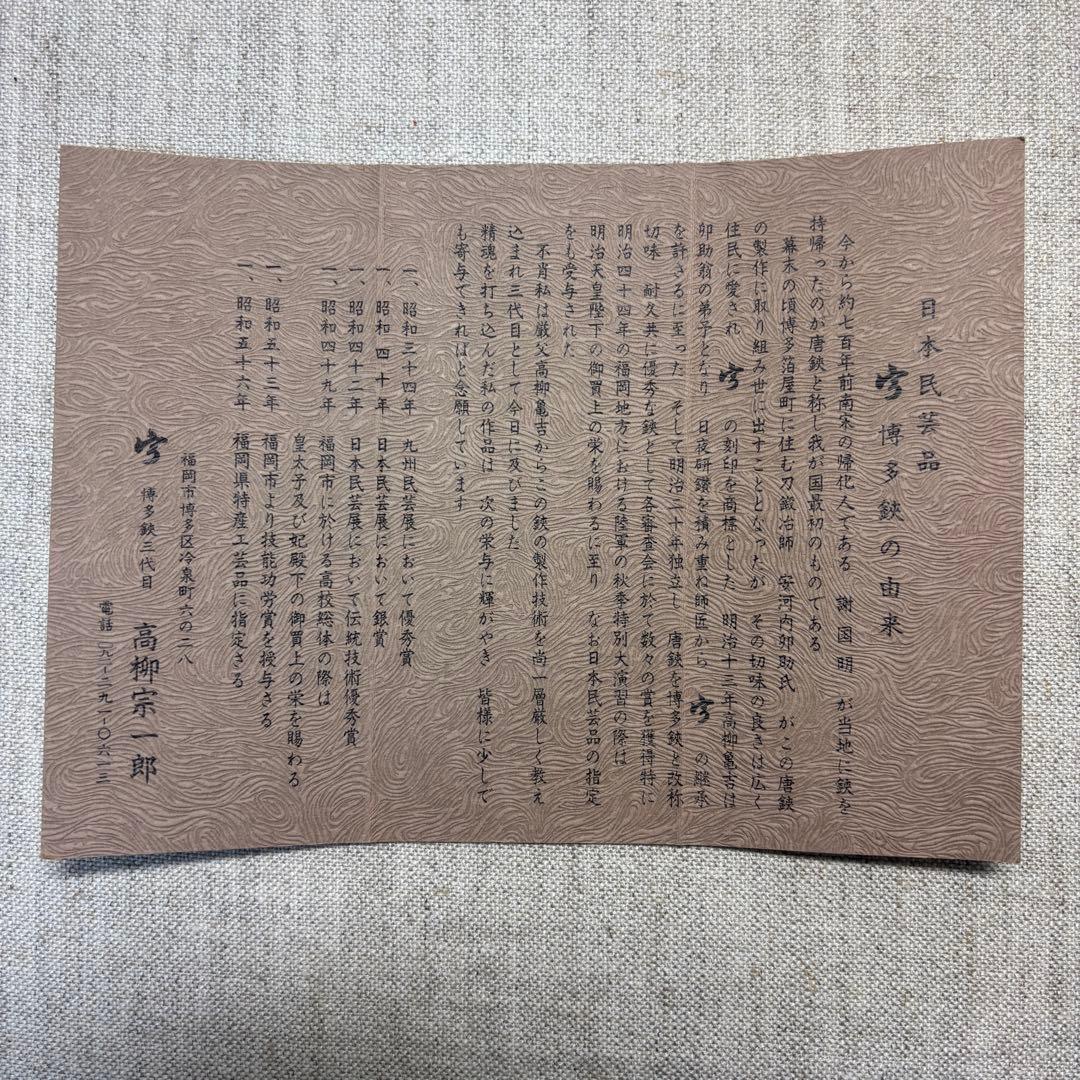 日本民芸品
博多鋏の由来
今から約七百年前南宋の帰化人である 謝国明 が当地に鋏を
持帰ったのが唐鋏と称し我が国最初のものである
幕末の頃博多箔屋町に住む刀鍛冶師 安河内卯助氏 がこの唐鋏
の製作に取り組み世に出すこととなったが その切味の良さは広く
住民に愛され の刻印を商標とした 明治十三年高柳亀吉は
卯助翁の弟子となり 日夜研鑽を積み重ね師匠から の継承
を許さるに至った そして明治二十年独立し 唐鋏を博多鋏と改称
切味 耐久共に優秀な鋏として各審査会に於て数々の賞を獲得特に
明治四十四年の福岡地方における陸軍の秋季特別大演習の際は
明治天皇陛下の御買上の栄を賜わるに至り なお日本民芸品の指定
をも受与された
不肖私は厳父高柳亀吉からこの鋏の製作技術を尚一層厳しく教え
込まれ三代目として今日に及びました
精魂を打ち込んだ私の作品は 次の栄与に輝がやき 皆様に少しで
も寄与できればと念願しています
一、昭和三十四年 九州民芸展において優秀賞
一、昭和四十年 日本民芸展において銀賞
一、昭和四十二年 日本民芸展において伝統技術優秀賞
一、昭和四十九年 福岡市に於ける高校総体の際は
皇太子及び妃殿下の御買上の栄を賜わる
一、昭和五十三年 福岡市より技能功労賞を授与さる
一、昭和五十六年 福岡県特産工芸品に指定さる
福岡市博多区冷泉町六の二八
博多鋏三代目 高柳宗一郎
電話二九一-〇六一三